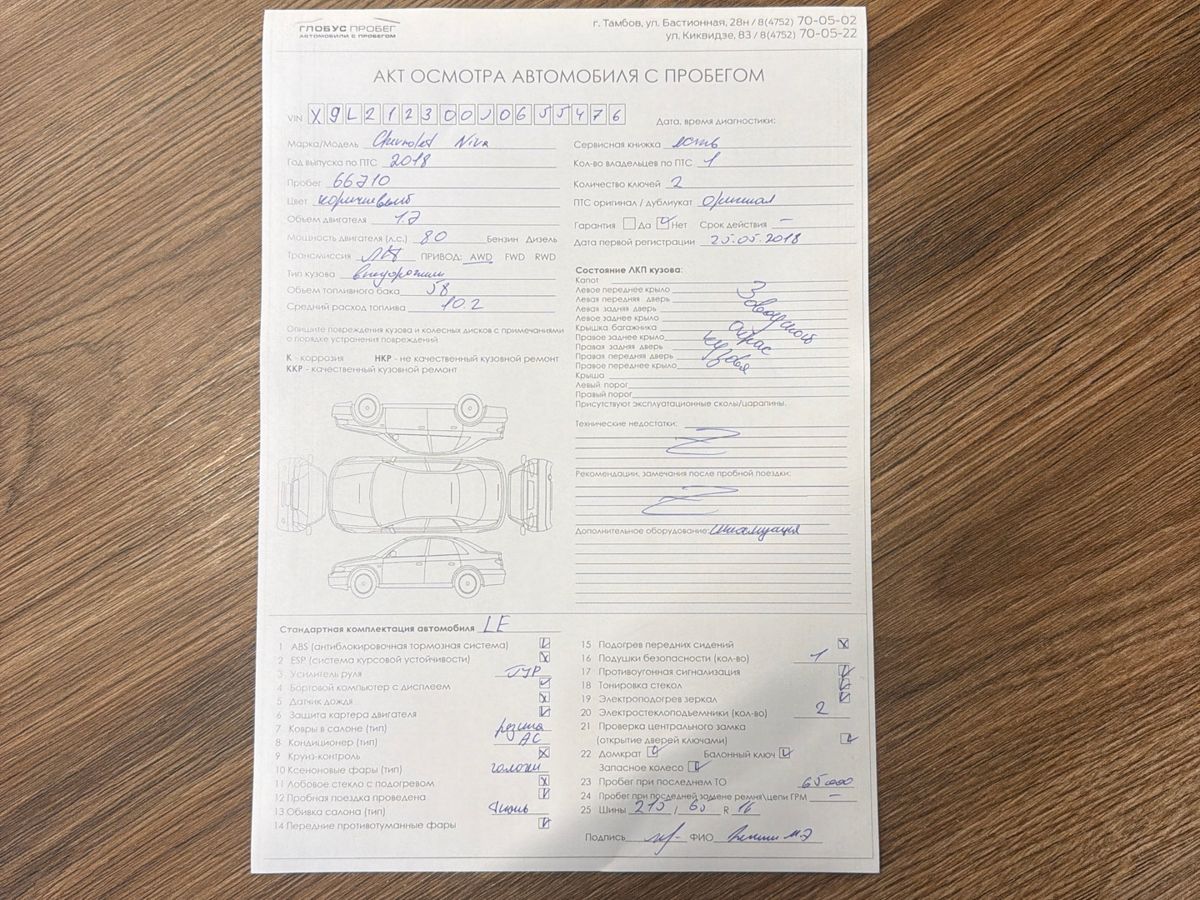 ГЛОБУС ПРОБЕГ
АВТОМОБИЛИ С ПРОБЕГОМ
г. Тамбов, ул. Бастионная, 28н / 8(4752) 70-05-02
ул. Киквидзе, 83 / 8(4752) 70-05-22
АКТ ОСМОТРА АВТОМОБИЛЯ С ПРОБЕГОМ
VIN X9L212300J0655476
Марка/Модель Chevrolet Niva
Год выпуска по ПТС 2018
Пробег 66710
Цвет коричневый
Объем двигателя 1.7
Мощность двигателя (л.с.) 80 Бензин Дизель
Трансмиссия ПРИВОД: AWD FWD RWD
Тип кузова внедорожник
Объем топливного бака 58
Средний расход топлива 10.2
Опишите повреждения кузова и колесных дисков с примечаниями
о порядке устранения повреждений
К - коррозия НКР - не качественный кузовной ремонт
ККР - качественный кузовной ремонт
Дата, время диагностики:
Сервисная книжка есть
Кол-во владельцев по ПТС 1
Количество ключей 2
ПТС оригинал / дубликат Оригинал
Гарантия Да Нет Срок действия —
Дата первой регистрации 25.05.2018
Состояние ЛКП кузова:
Капот
Левое переднее крыло
Левая передняя дверь
Левая задняя дверь
Левое заднее крыло
Крышка багажника
Правое заднее крыло
Правая задняя дверь
Правая передняя дверь
Правое переднее крыло
Крыша
Левый порог
Правый порог
Заводской
окрас
кузова
Присутствуют эксплуатационные сколы/царапины.
Технические недостатки:
Рекомендации, замечания после пробной поездки:
Дополнительное оборудование: сигнализация
Стандартная комплектация автомобиля LE
1 ABS (антиблокировочная тормозная система)
2 ESP (система курсовой устойчивости)
3 Усилитель руля ГУР
4 Бортовой компьютер с дисплеем
5 Датчик дождя
6 Защита картера двигателя
7 Ковры в салоне (тип) резина
8 Кондиционер (тип) AC
9 Круиз-контроль
10 Ксеноновые фары (тип) галоген
11 Лобовое стекло с подогревом
12 Пробная поездка проведена
13 Обивка салона (тип) ткань
14 Передние противотуманные фары
15 Подогрев передних сидений
16 Подушки безопасности (кол-во) 1
17 Противоугонная сигнализация
18 Тонировка стекол
19 Электроподогрев зеркал
20 Электростеклоподъемники (кол-во) 2
21 Проверка центрального замка
(открытие дверей ключами)
22 Домкрат Балонный ключ
Запасное колесо
23 Пробег при последнем ТО 65000
24 Пробег при последней замене ремня\цепи ГРМ —
25 Шины 215 / 65 R 16
Подпись ФИО